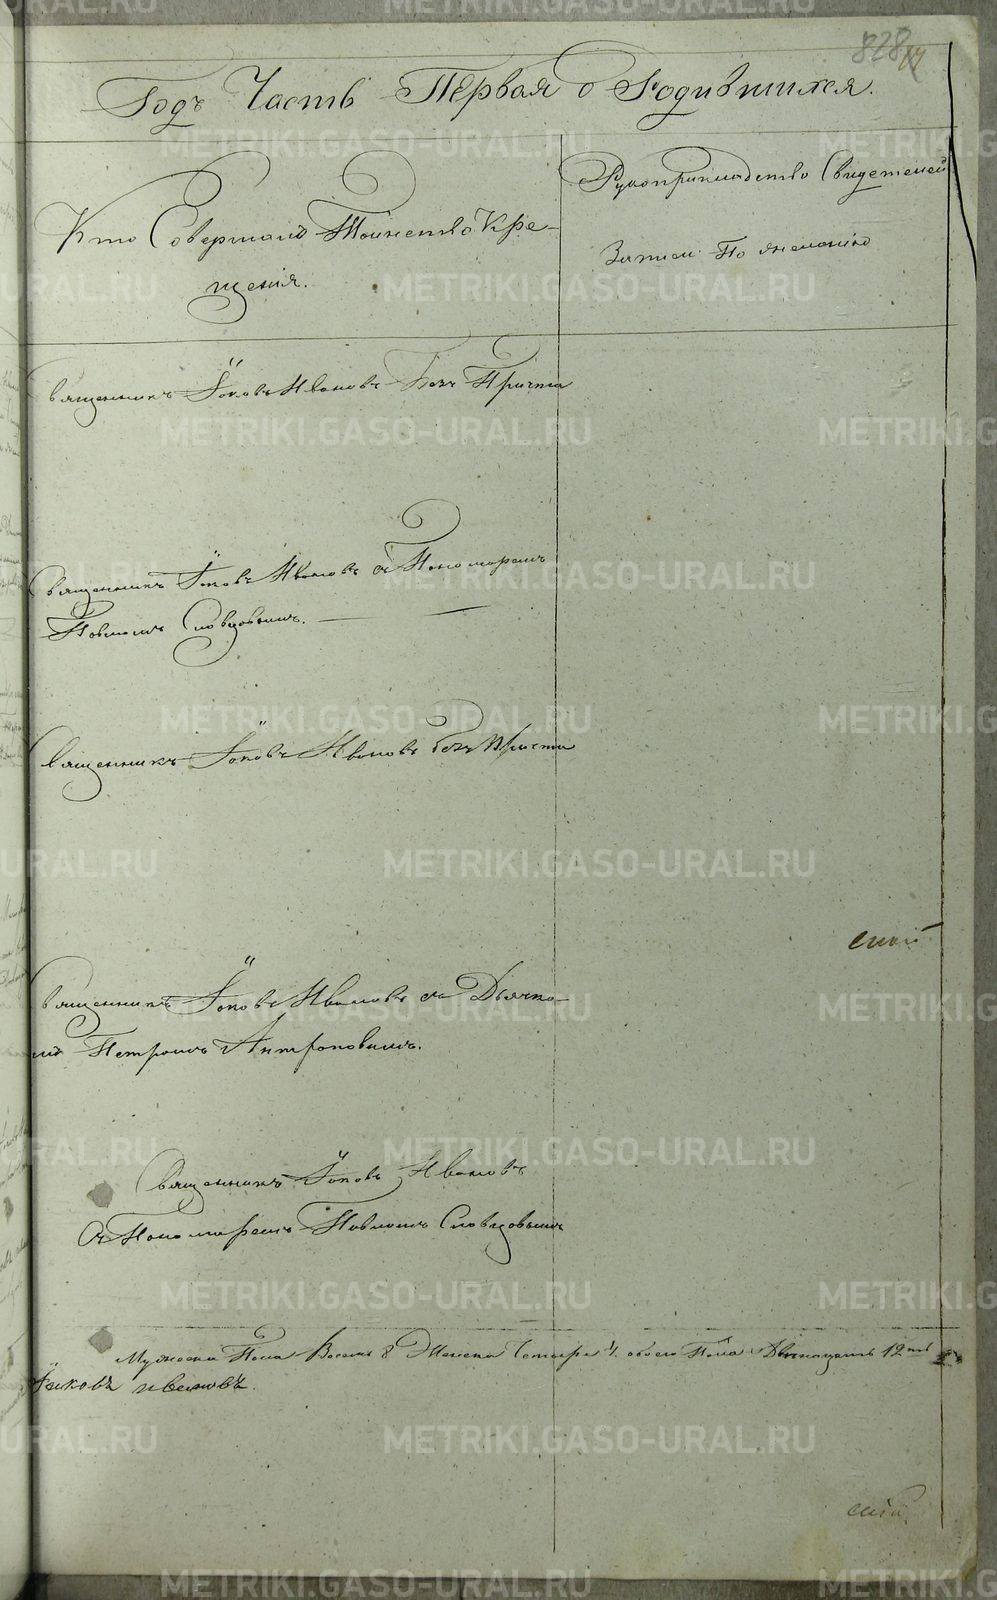 828
Годъ Часть Первая о Родившихся.
Кто Совершалъ Таинство Кре-
щенія.
Рукоприкладство Свидетелей
Записи По желанію
Священникъ Іаковъ Ивановъ Безъ Причта
Священникъ Іаковъ Ивановъ съ Пономаремъ
Павломъ Словцовымъ.
Священникъ Іаковъ Ивановъ безъ Причта
ской
Священникъ Іаковъ Ивановъ съ Дьячко-
мъ Петромъ Антроповымъ.
Священникъ Іаковъ Ивановъ
Съ Пономаремъ Павломъ Словцовымъ
Мужеска Пола Восемь 8 Женска Четыре 4. обоего Пола Двенацеть 12ть
Іаковъ Ивановъ.
METRIKI.GASO-URAL.RU